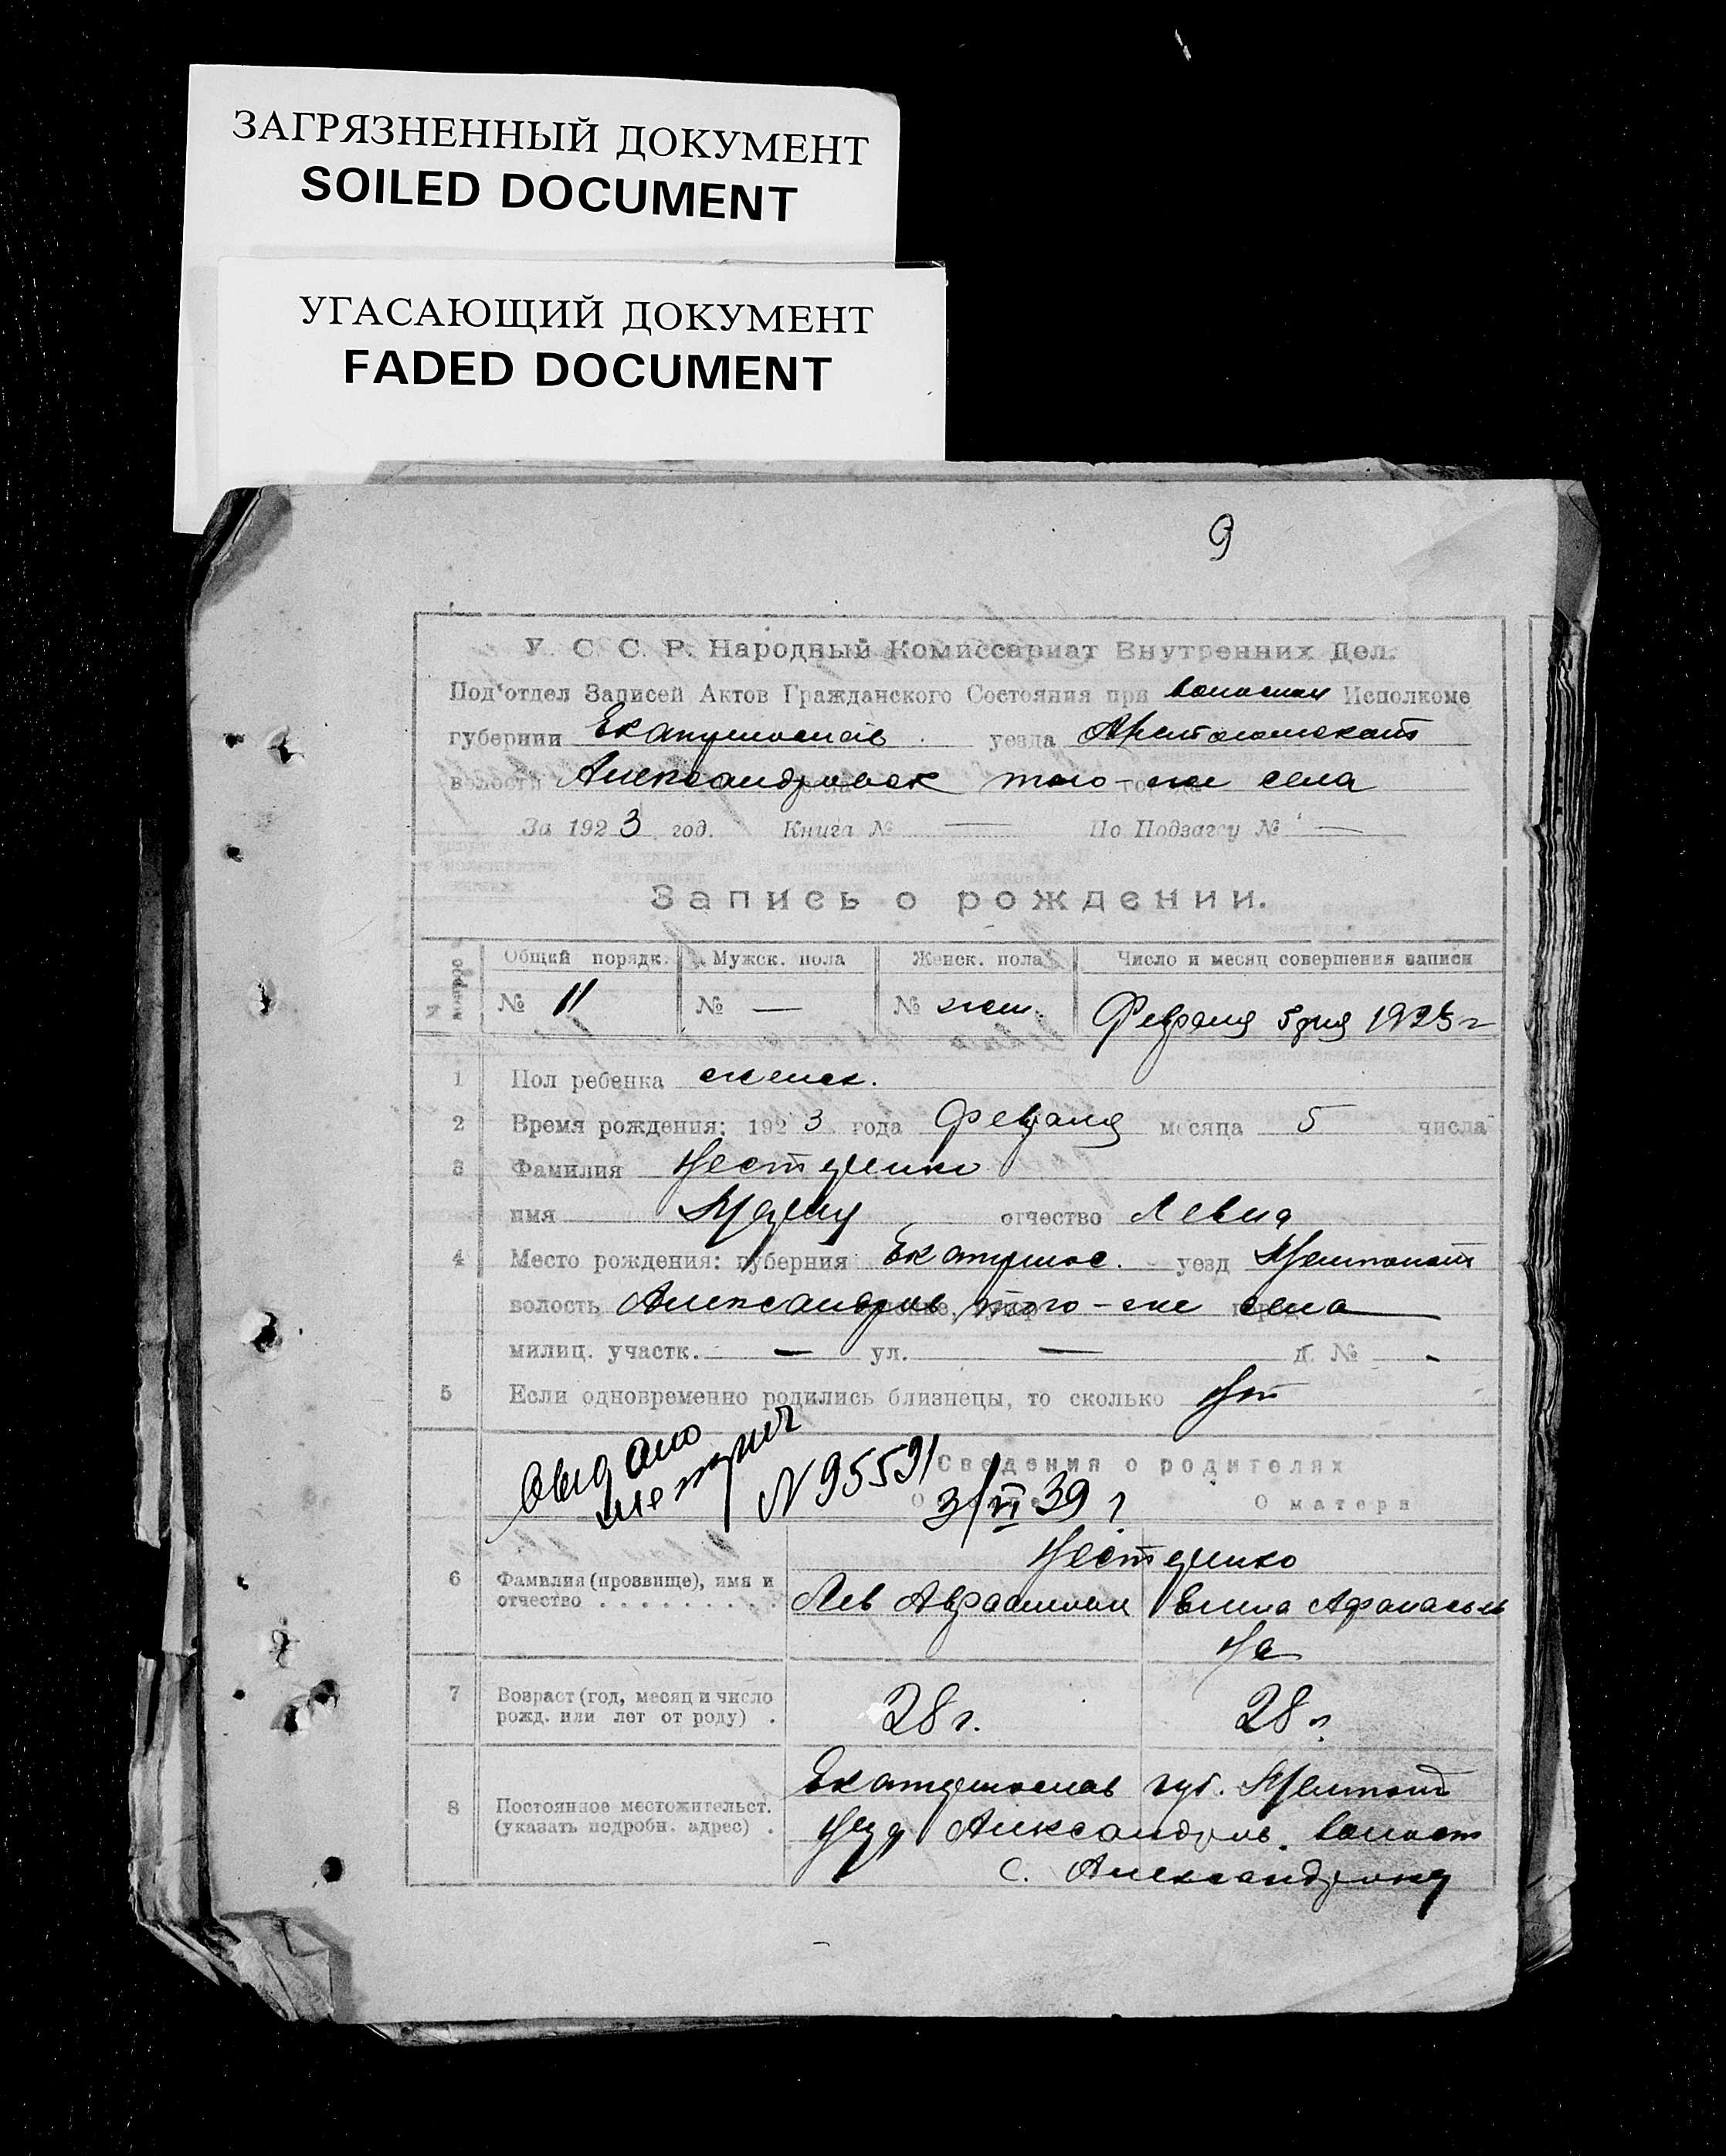 ЗАГРЯЗНЕННЫЙ ДОКУМЕНТ
SOILED DOCUMENT
УГАСАЮЩИЙ ДОКУМЕНТ
FADED DOCUMENT
9
У. С. С. Р. Народный Комиссариат Внутренних Дел.
Под'отдел Записей Актов Гражданского Состояния при Исполкоме
губернии уезда
волости Александровск того-же села
За 1923 год. Книга № — По Подзагсу № —
Запись о рождении.
Общий порядк. Мужск. пола Женск. пола Число и месяц совершения записи
№ 11 № — № жен. Февраля 5 дня 1923 г
1 Пол ребенка женск.
2 Время рождения: 1923 года Февраля месяца 5 числа
3 Фамилия Нестеренко
имя отчество Левна
4 Место рождения: губерния Екатеринос. уезд
волость Александров того-же села
милиц. участк. — ул. — д. № -
5 Если одновременно родились близнецы, то сколько Нет
Выдано
метрич
N 95591
3/VI 39 г
Сведения о родителях
О матери
Нестеренко
6 Фамилия (прозвище), имя и
отчество . . . . . . . . . Лев Авраамович Афанасьев
На
7 Возраст (год, месяц и число
рожд. или лет от роду) . 28 г. 28 г.
8 Постоянное местожительст.
(указать подробн. адрес) .
Екатеринослав губ.
Александров. волост
с. Александровка